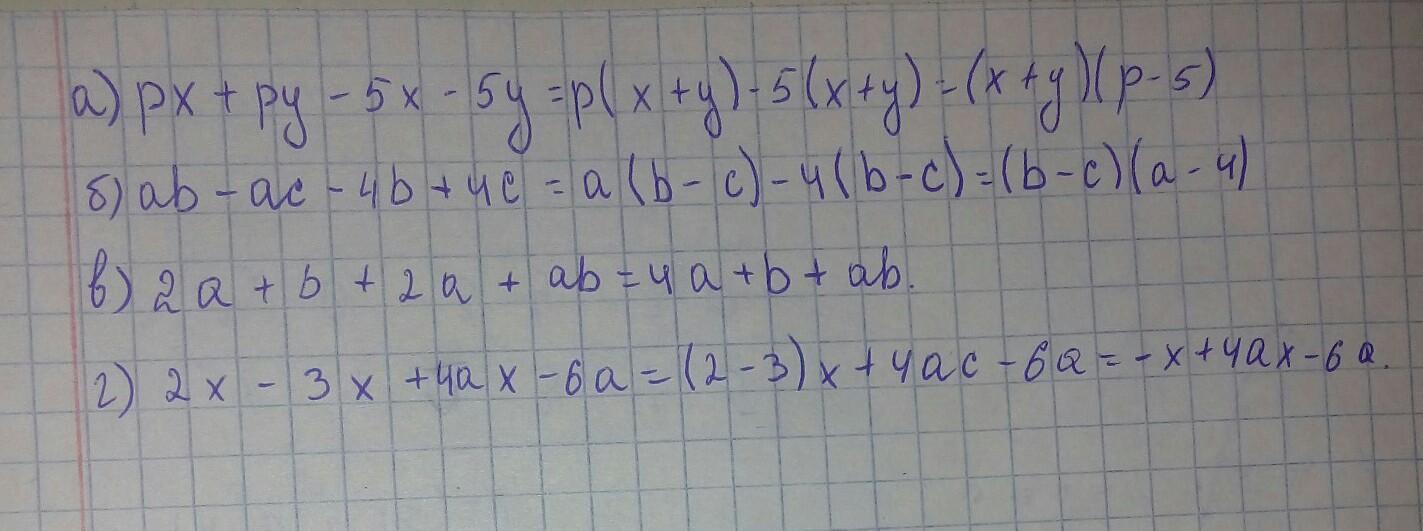 а) px + py - 5x - 5y = p(x+y) - 5(x+y) = (x+y)(p-5)
б) ab - ac - 4b + 4c = a(b-c) - 4(b-c) = (b-c)(a-4)
в) 2a + b + 2a + ab = 4a + b + ab.
г) 2x - 3x + 4ax - 6a = (2-3)x + 4ac - 6a = -x + 4ax - 6a.